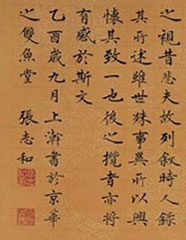 之視昔悲夫故列叙時人錄
其所述雖世殊事異所以興
懷其致一也後之攬者亦將
有感於斯文
乙酉歲九月上澣書於京華
之雙魚堂 張志和